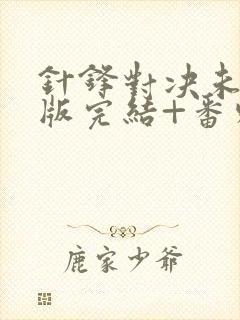 針鋒對決未
版完結+番
鹿家少爺